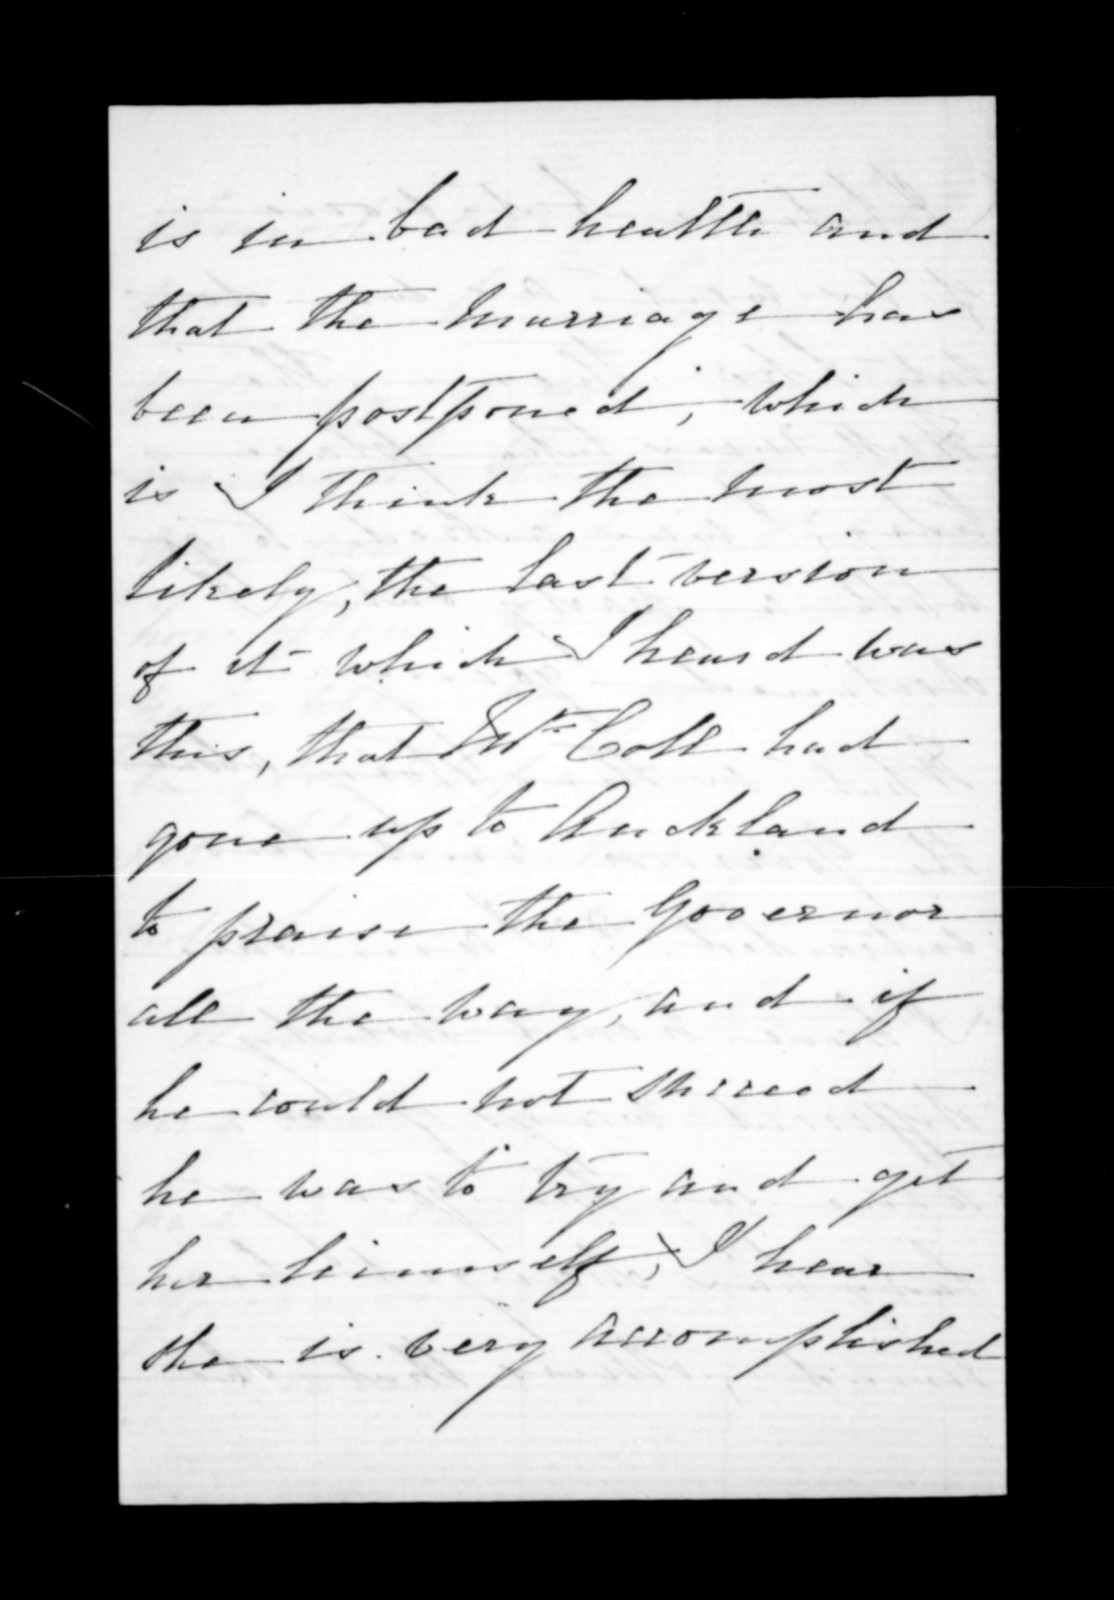 is in bad health and
that the marriage has
been postponed, which
is I think the most
likely, the last version
of it which I heard was
this, that Mr Coll had
gone up to Auckland
to praise the Governor
all the way, and if
he could not succeed
he was to try and get
her himself, I hear
she is very accomplished